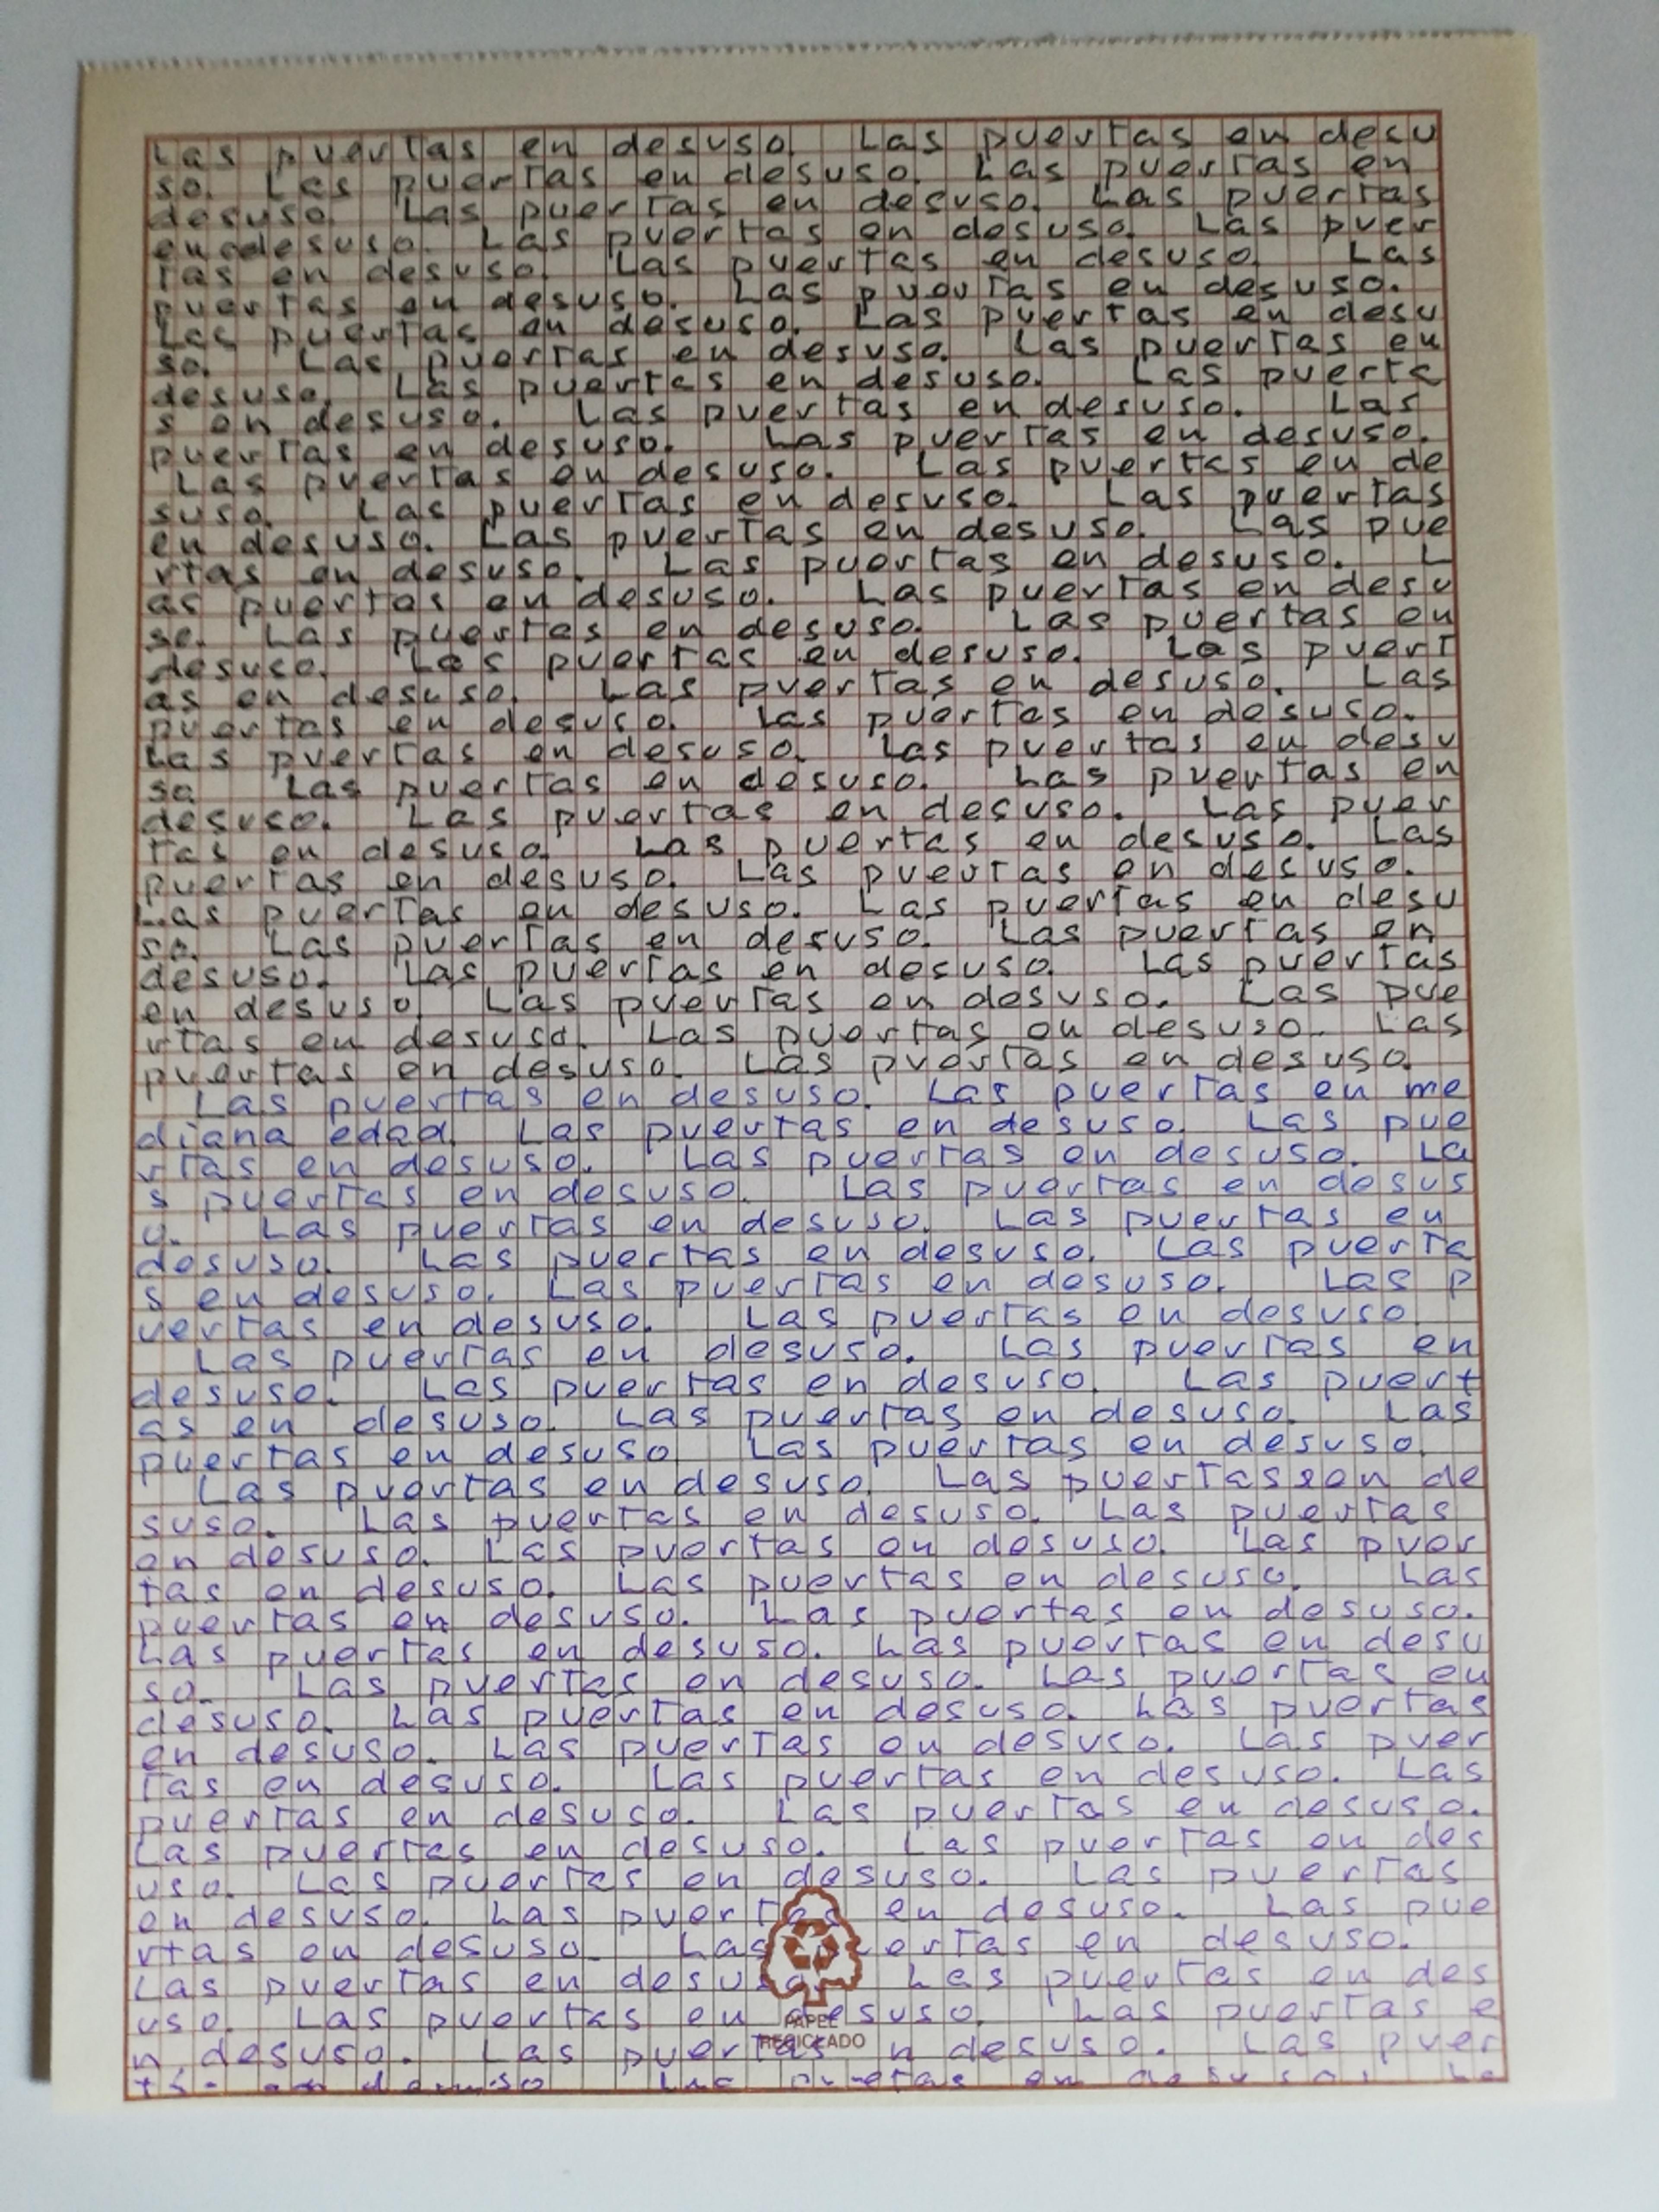 Las puertas en desuso. Las puertas en desu
so. Las puertas en desuso. Las puertas en
desuso. Las puertas en desuso. Las puertas
en desuso. Las puertas en desuso. Las puer
tas en desuso. Las puertas en desuso. Las
puertas en desuso. Las puertas en desuso.
Las puertas en desuso. Las puertas en desu
so. Las puertas en desuso. Las puertas en
desuso. Las puertas en desuso. Las puerta
s en desuso. Las puertas en desuso. Las
puertas en desuso. Las puertas en desuso.
Las puertas en desuso. Las puertas en de
suso. Las puertas en desuso. Las puertas
en desuso. Las puertas en desuso. Las pue
rtas en desuso. Las puertas en desuso. L
as puertas en desuso. Las puertas en desu
so. Las puertas en desuso. Las puertas en
desuso. Las puertas en desuso. Las puert
as en desuso. Las puertas en desuso. Las
puertas en desuso. Las puertas en desuso.
Las puertas en desuso. Las puertas en desu
so Las puertas en desuso. Las puertas en
desuso. Las puertas en desuso. Las puer
tas en desuso. Las puertas en desuso. Las
puertas en desuso. Las puertas en desuso.
Las puertas en desuso. Las puertas en desu
so. Las puertas en desuso. Las puertas en
desuso. Las puertas en desuso. Las puertas
en desuso. Las puertas en desuso. Las pue
rtas en desuso. Las puertas en desuso. Las
puertas en desuso. Las puertas en desuso.
Las puertas en desuso. Las puertas en me
diana edad. Las puertas en desuso. Las pue
rtas en desuso. Las puertas en desuso. La
s puertas en desuso. Las puertas en desus
o. Las puertas en desuso. Las puertas en
desuso. Las puertas en desuso. Las puerta
s en desuso. Las puertas en desuso. Las p
uertas en desuso. Las puertas en desuso.
Las puertas en desuso. Las puertas en
desuso. Las puertas en desuso. Las puert
as en desuso. Las puertas en desuso. Las
puertas en desuso. Las puertas en desuso.
Las puertas en desuso. Las puertassen de
suso. Las puertas en desuso. Las puertas
en desuso. Las puertas en desuso. Las puer
tas en desuso. Las puertas en desuso. Las
puertas en desuso. Las puertas en desuso.
Las puertas en desuso. Las puertas en desu
so. Las puertas en desuso. Las puertas en
desuso. Las puertas en desuso. Las puertas
en desuso. Las puertas en desuso. Las puer
tas en desuso. Las puertas en desuso. Las
puertas en desuso. Las puertas en desuso.
Las puertas en desuso. Las puertas en des
uso. Las puertas en desuso. Las puertas
en desuso. Las puertas en desuso. Las pue
rtas en desuso. Las puertas en desuso.
Las puertas en desuso. Las puertas en des
uso. Las puertas en desuso. Las puertas e
n desuso. Las puertas n desuso. Las puer
en desuso Las puertas en desuso. La
PAPEL
RECICLADO